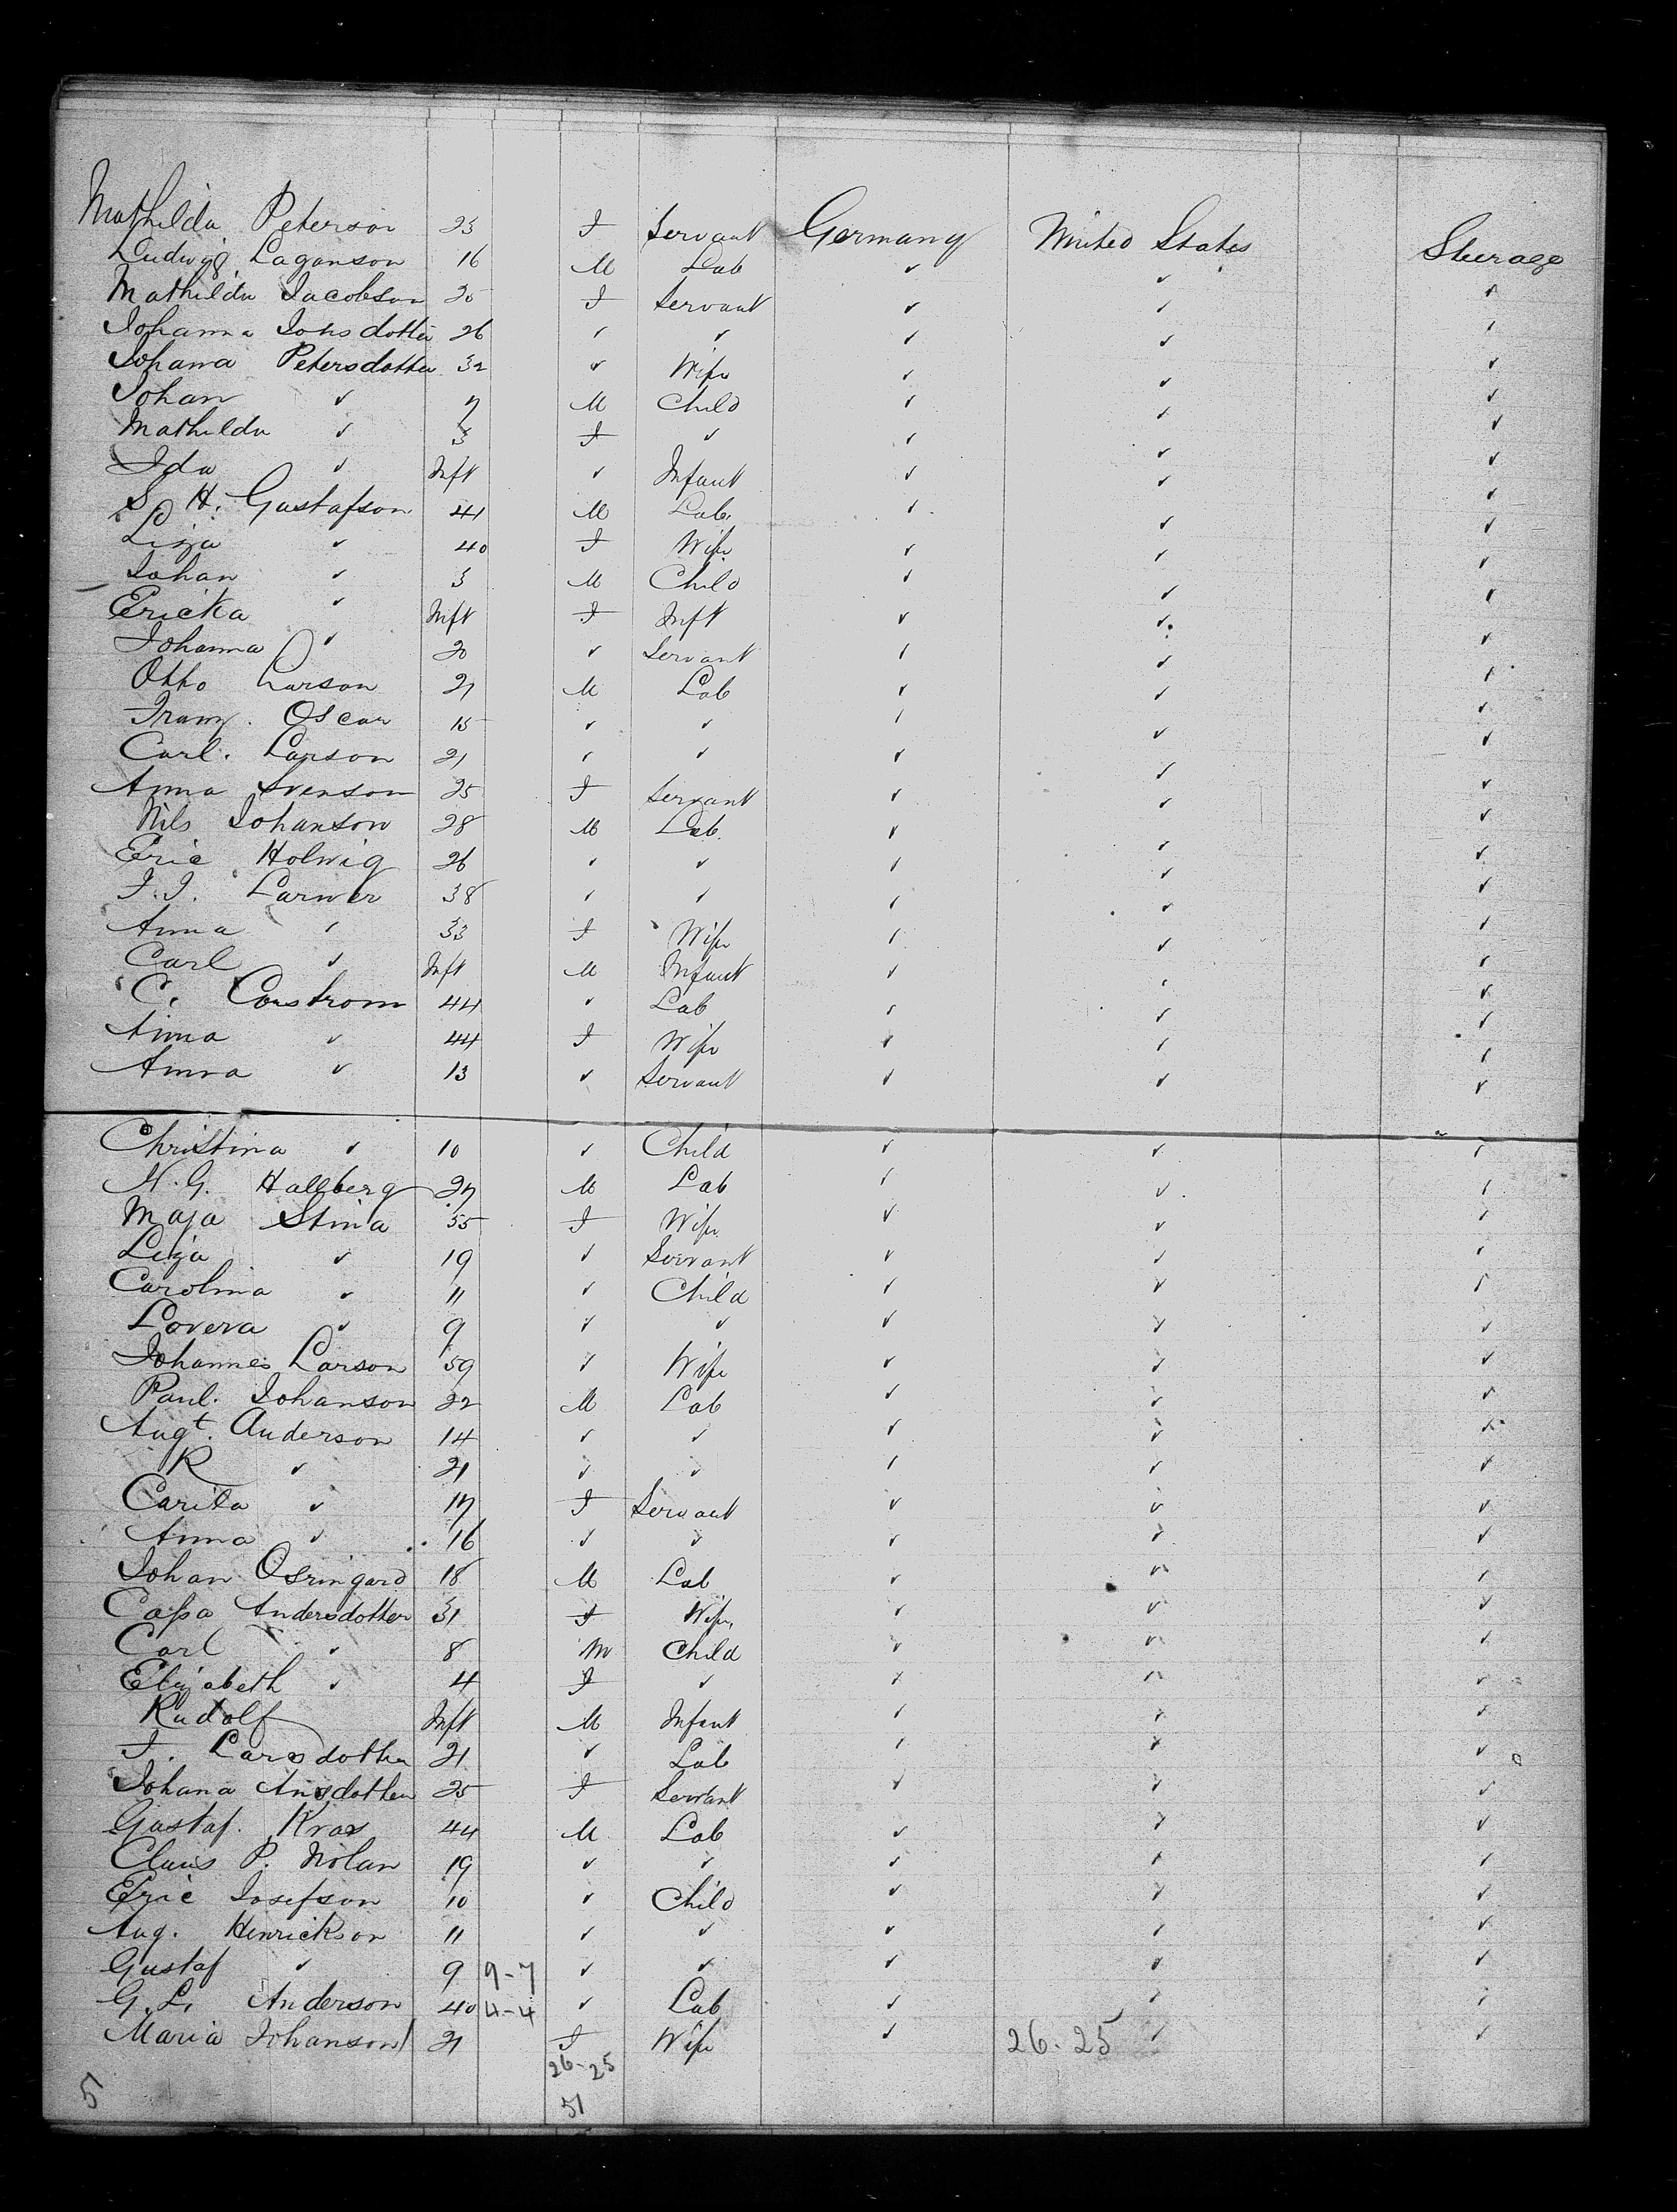 Mathilda Peterson 23 F Servant Germany United States Steerage
Ludwig Laganson 16 M Lab ✓ ✓ ✓
Mathilda Jacobson 25 F Servant ✓ ✓ ✓
Johanna Jonsdotter 26 ✓ ✓ ✓ ✓ ✓
Johanna Petersdotter 32 ✓ Wife ✓ ✓ ✓
Johan ✓ 7 M Child ✓ ✓ ✓
Mathilda ✓ 3 F ✓ ✓ ✓ ✓
Ida ✓ Inft ✓ Infant ✓ ✓ ✓
S. H. Gustafson 41 M Lab. ✓ ✓ ✓
Lisja ✓ 40 F Wife ✓ ✓ ✓
Johan ✓ 3 M Child ✓ ✓ ✓
Ericka ✓ Inft F Inft ✓ ✓ ✓
Johanna ✓ 20 ✓ Servant ✓ ✓ ✓
Otto Larson 21 M Lab ✓ ✓ ✓
Franz. Oscar 15 ✓ ✓ ✓ ✓ ✓
Carl. Larson 21 ✓ ✓ ✓ ✓ ✓
Anna Svenson 25 F Servant ✓ ✓ ✓
Nils Johanson 28 M Lab. ✓ ✓ ✓
Eric Holwig 26 ✓ ✓ ✓ ✓ ✓
J. J. Larwer 38 ✓ ✓ ✓ ✓ ✓
Anna ✓ 33 F Wife ✓ ✓ ✓
Carl ✓ Inft M Infant ✓ ✓ ✓
C. Constrom 44 ✓ Lab ✓ ✓ ✓
Anna ✓ 44 F Wife ✓ ✓ ✓
Anna ✓ 13 ✓ Servant ✓ ✓ ✓
Christina ✓ 10 ✓ Child ✓ ✓ ✓
N. G. Hallberg 27 M Lab ✓ ✓ ✓
Maja Stina 55 F Wife ✓ ✓ ✓
Liza ✓ 19 ✓ Servant ✓ ✓ ✓
Carolina ✓ 11 ✓ Child ✓ ✓ ✓
Lovera ✓ 9 ✓ ✓ ✓ ✓ ✓
Johannes Larson 59 ✓ Wife ✓ ✓ ✓
Paul. Johanson 22 M Lab ✓ ✓ ✓
Augt. Anderson 14 ✓ ✓ ✓ ✓ ✓
R ✓ 21 ✓ ✓ ✓ ✓ ✓
Carita ✓ 17 F Servant ✓ ✓ ✓
Anna ✓ 16 ✓ ✓ ✓ ✓ ✓
Johan Osringard 18 M Lab ✓ ✓ ✓
Cassa Andersdotter 31 F Wife ✓ ✓ ✓
Carl ✓ 8 M Child ✓ ✓ ✓
Elizabeth ✓ 4 F ✓ ✓ ✓ ✓
Rudolf Inft M Infant ✓ ✓ ✓
J. Larsdotter 21 ✓ Lab ✓ ✓ ✓
Johana Ansdotter 25 F Servant ✓ ✓ ✓
Gustaf. Kras 44 M Lab ✓ ✓ ✓
Claus P. Nolan 19 ✓ ✓ ✓ ✓ ✓
Eric Josefson 10 ✓ Child ✓ ✓ ✓
Aug. Henrickson 11 ✓ ✓ ✓ ✓ ✓
Gustaf ✓ 9 9-7 ✓ ✓ ✓ ✓ ✓
G. L. Anderson 40 4-4 ✓ Lab ✓ ✓ ✓
Maria Johanson 21 F Wife ✓ 26-25 ✓ ✓
26-25
5 51